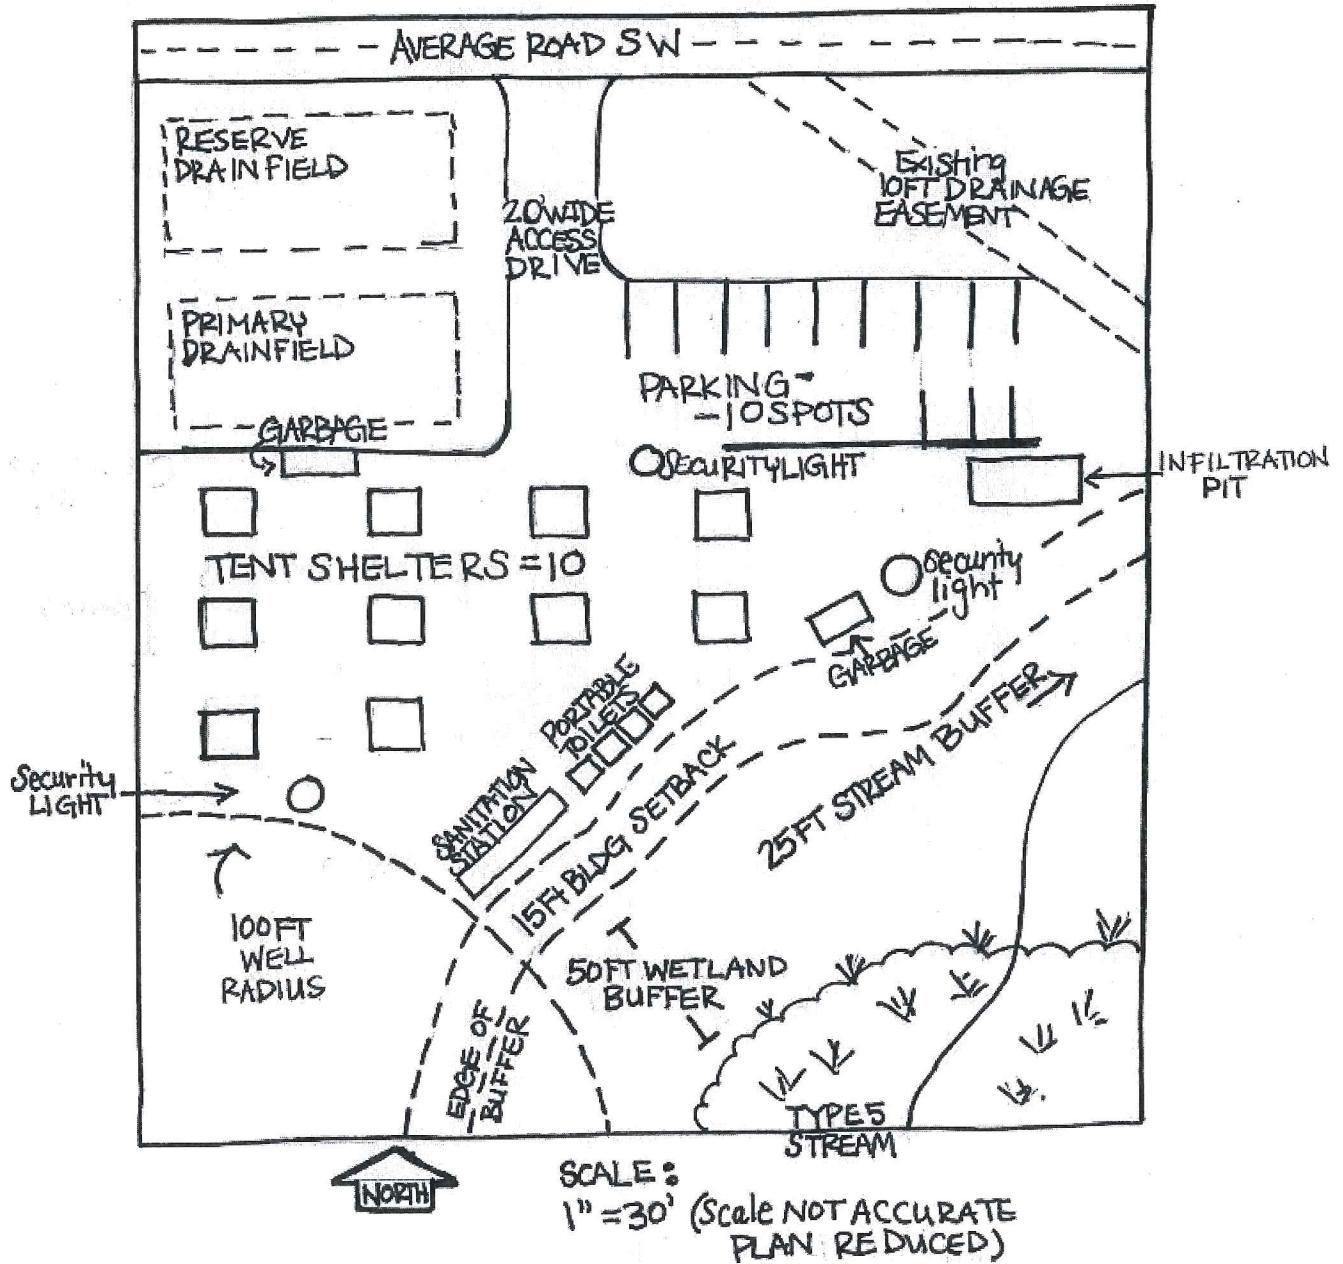 AVERAGE ROAD SW
RESERVE
DRAINFIELD
Existing
10FT DRAINAGE
EASEMENT
20'WIDE
ACCESS
DRIVE
PRIMARY
DRAINFIELD
PARKING-
-10 SPOTS
GARBAGE
SECURITYLIGHT
INFILTRATION
PIT
TENT SHELTERS = 10
Security
light
GARBAGE
PORTABLE
TOILETS
Security
LIGHT
SANITATION
STATION
15Ft BLDG SETBACK
25FT STREAM BUFFER
100FT
WELL
RADIUS
50FT WETLAND
BUFFER
EDGE OF
BUFFER
TYPE 5
STREAM
NORTH
SCALE:
1" = 30' (Scale NOT ACCURATE
PLAN REDUCED)